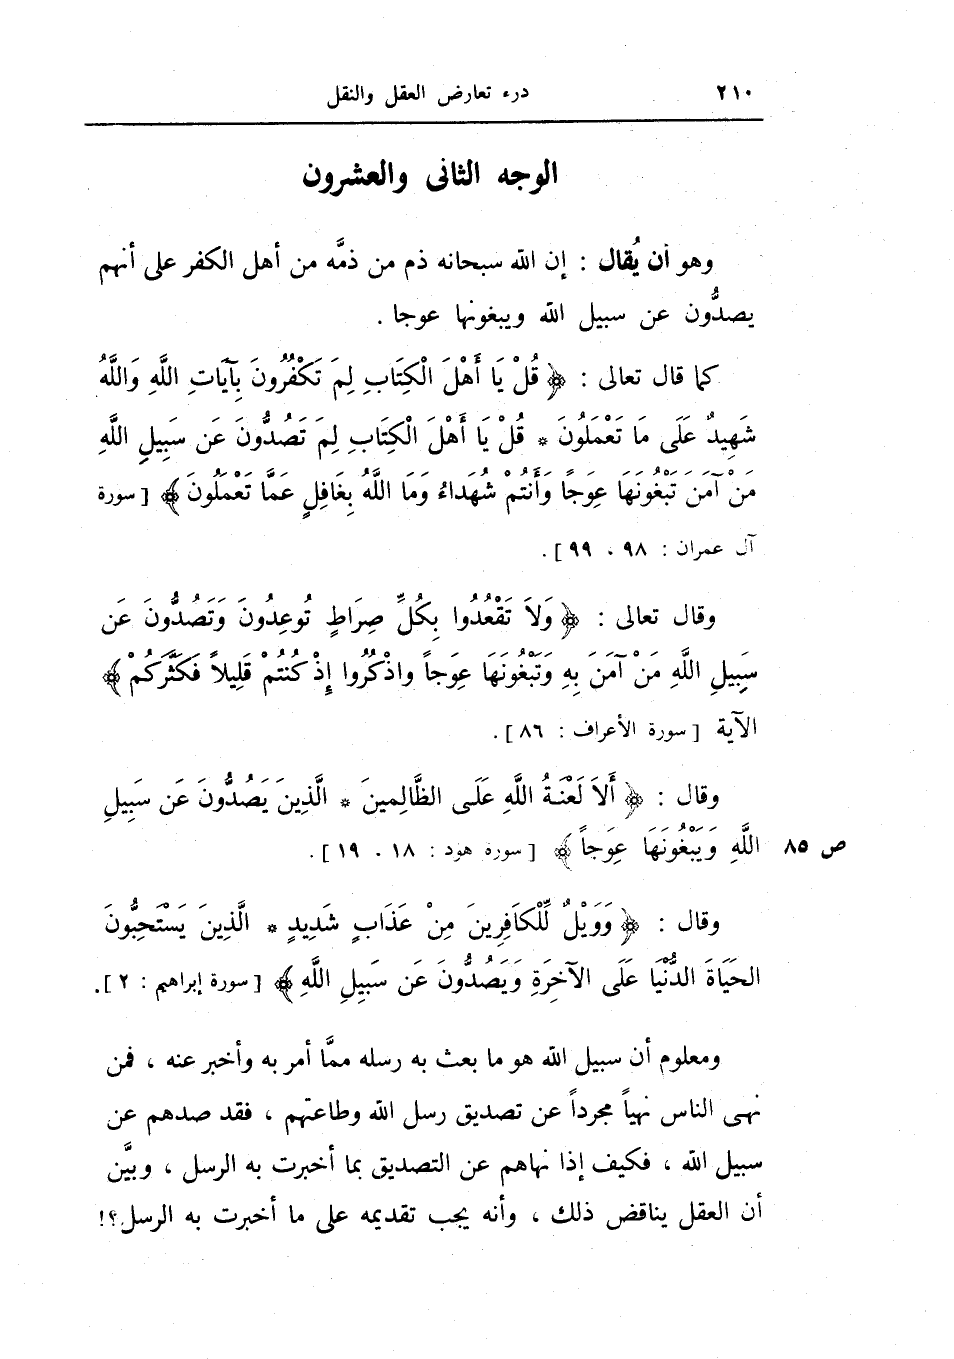 ٢١٠ درء تعارض العقل والنقل
الوجه الثانى والعشرون
وهو أن يُقال : إن الله سبحانه ذم من ذمَّه من أهل الكفر على أنهم
يصدُّون عن سبيل الله ويبغونها عوجا .
كما قال تعالى : ﴿ قُلْ يَا أَهْلَ الْكِتَابِ لِمَ تَكْفُرُونَ بِآيَاتِ اللَّهِ وَاللَّهُ
شَهِيدٌ عَلَى مَا تَعْمَلُونَ * قُلْ يَا أَهْلَ الْكِتَابِ لِمَ تَصُدُّونَ عَن سَبِيلِ اللَّهِ
مَنْ آمَنَ تَبْغُونَهَا عِوَجاً وَأَنتُمْ شُهَدَاءُ وَمَا اللَّهُ بِغَافِلٍ عَمَّا تَعْمَلُونَ ﴾ [ سورة
آل عمران : ٩٨ ، ٩٩ ] .
وقال تعالى : ﴿ وَلاَ تَقْعُدُوا بِكُلِّ صِرَاطٍ تُوعِدُونَ وَتَصُدُّونَ عَن
سَبِيلِ اللَّهِ مَنْ آمَنَ بِهِ وَتَبْغُونَهَا عِوَجاً واذْكُرُوا إِذْ كُنتُمْ قَلِيلاً فَكَثَّرَكُمْ ﴾
الآية [ سورة الأعراف : ٨٦ ] .
وقال : ﴿ أَلاَ لَعْنَةُ اللَّهِ عَلَى الظَّالِمِينَ * الَّذِينَ يَصُدُّونَ عَن سَبِيلِ
ص ٨٥ اللَّهِ وَيَبْغُونَهَا عِوَجاً ﴾ [ سورة هود : ١٨ ، ١٩ ] .
وقال : ﴿ وَوَيْلٌ لِّلْكَافِرِينَ مِنْ عَذَابٍ شَدِيدٍ * الَّذِينَ يَسْتَحِبُّونَ
الحَيَاةَ الدُّنْيَا عَلَى الآخِرَةِ وَيَصُدُّونَ عَن سَبِيلِ اللَّهِ ﴾ [ سورة إبراهيم : ٢ ] .
ومعلوم أن سبيل الله هو ما بعث به رسله ممَّا أمر به وأخبر عنه ، فمن
نهى الناس نهياً مجرداً عن تصديق رسل الله وطاعتهم ، فقد صدهم عن
سبيل الله ، فكيف إذا نهاهم عن التصديق بما أخبرت به الرسل ، وبيَّن
أن العقل يناقض ذلك ، وأنه يجب تقديمه على ما أخبرت به الرسل؟!